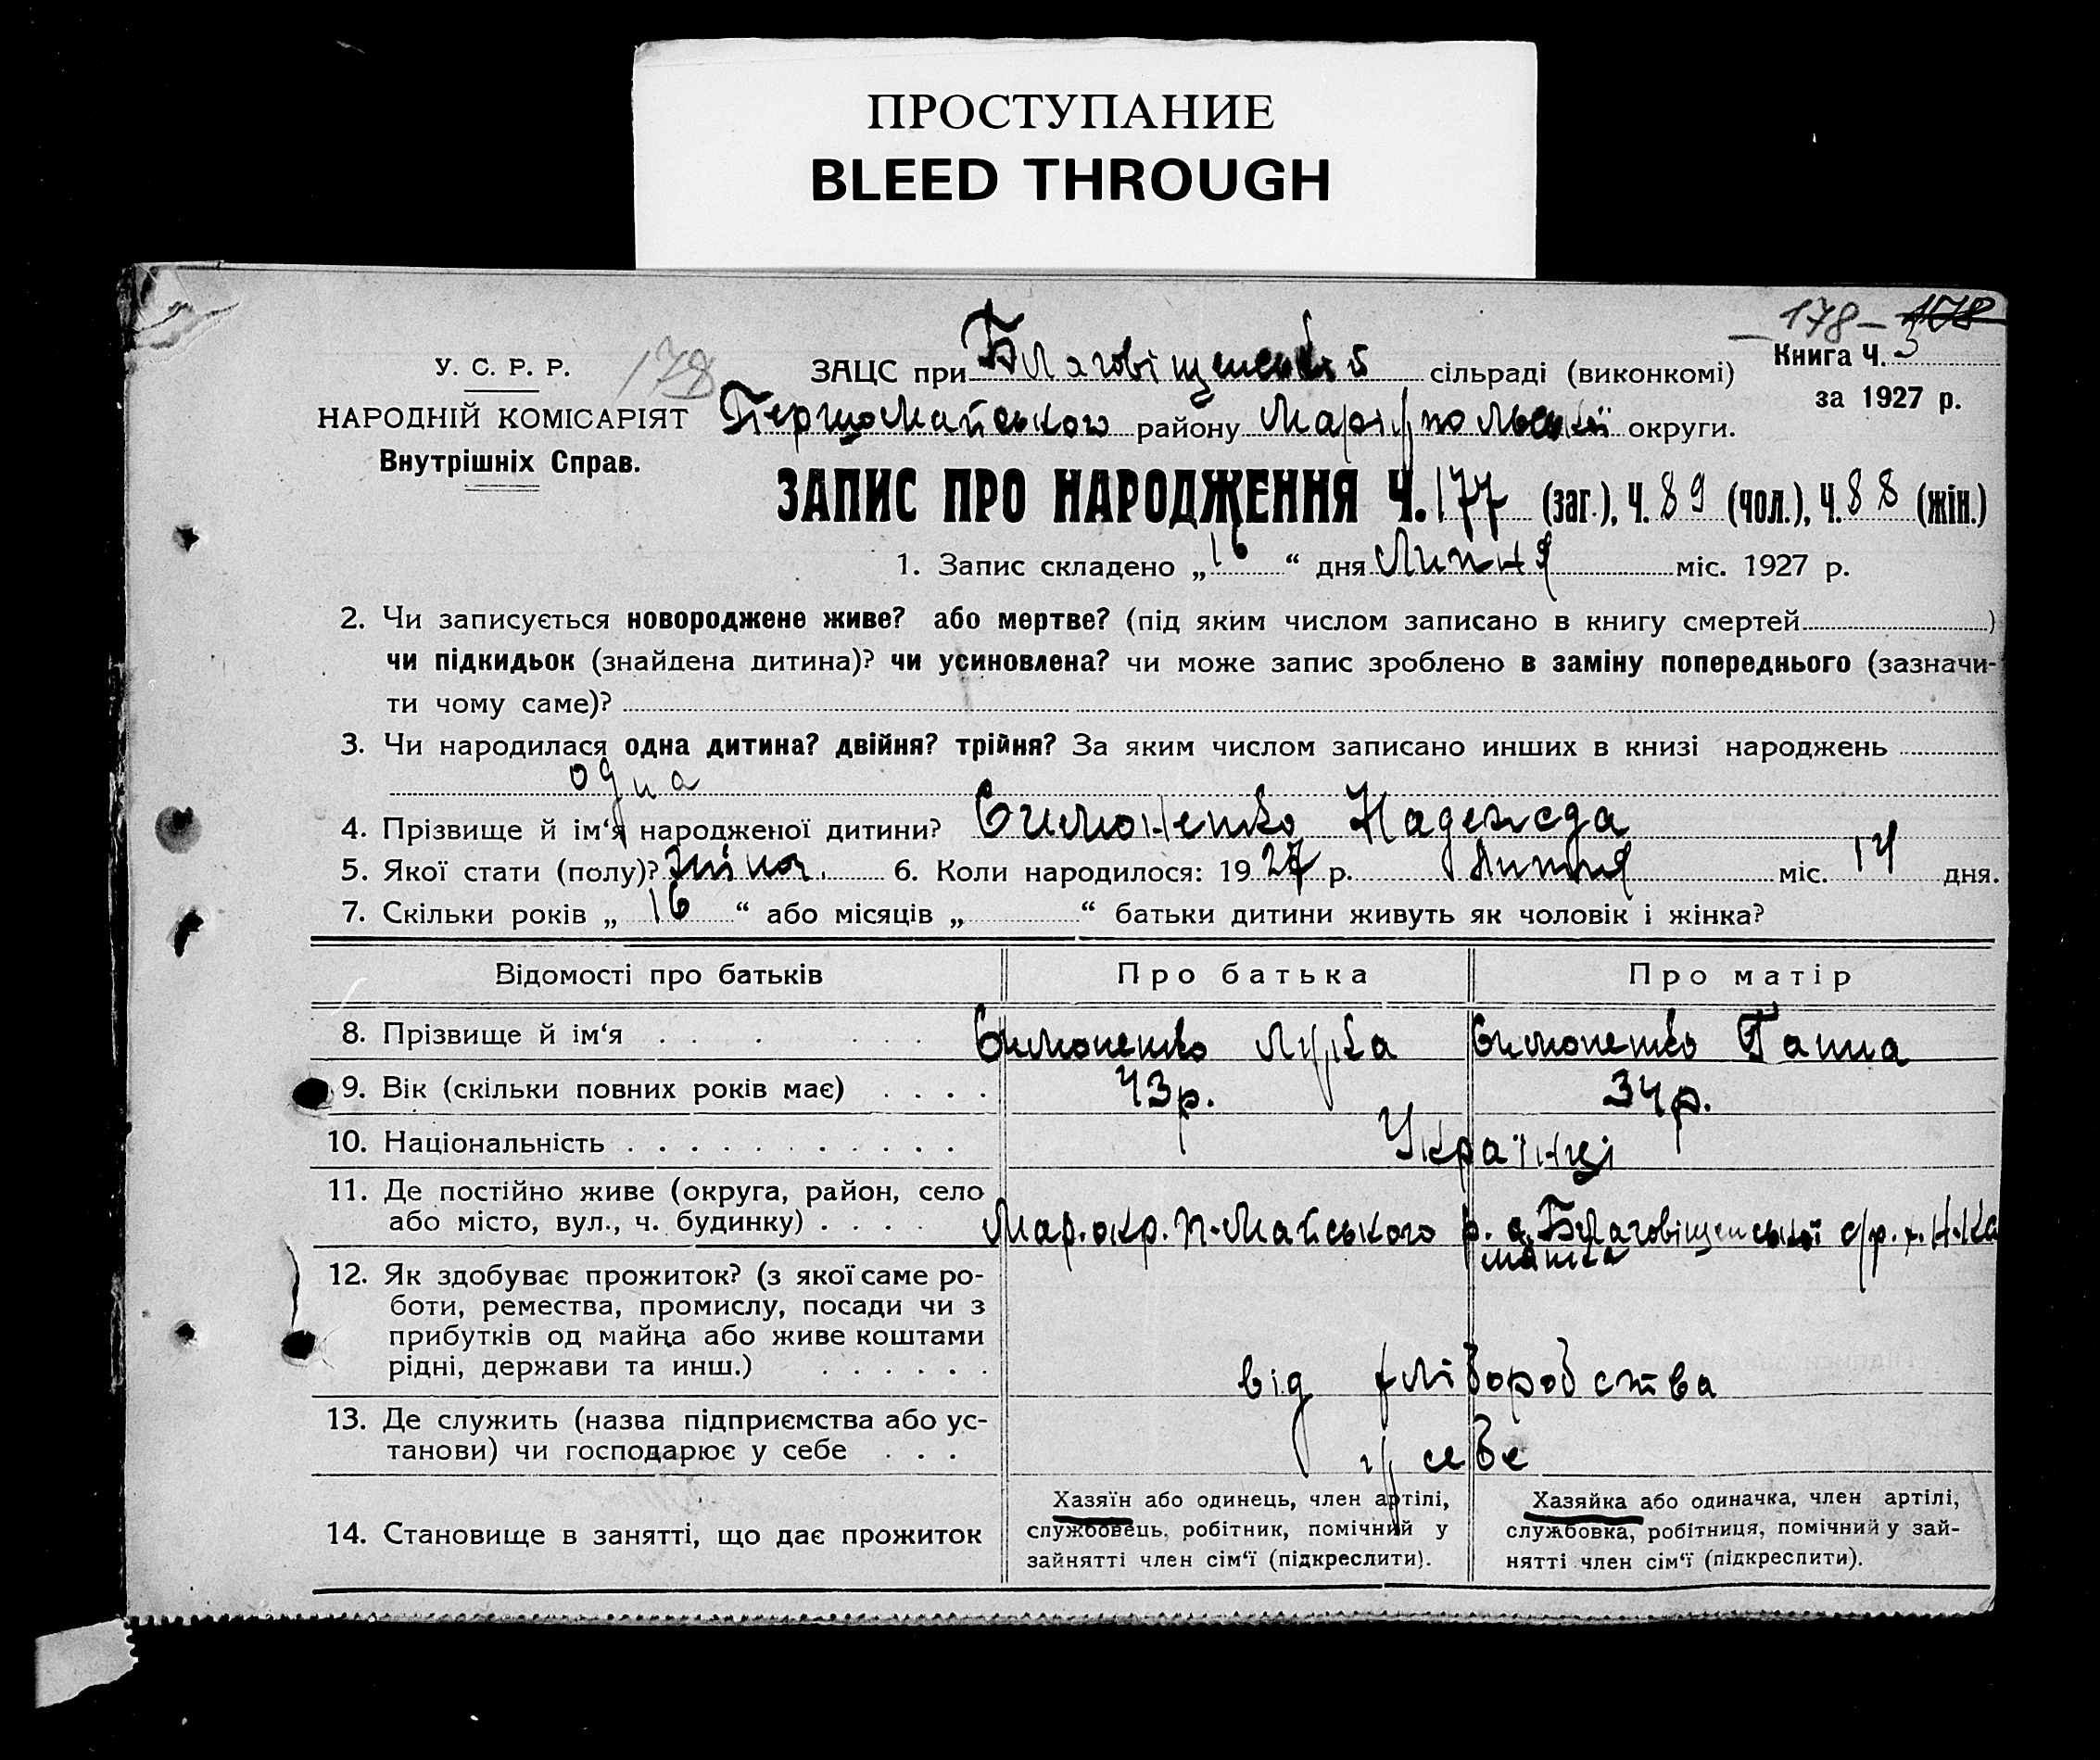 ПРОСТУПАНИЕ
BLEED THROUGH
178 - 178
У. С. Р. Р. 178 ЗАЦС при Благовіщенській сільраді (виконкомі) Книга Ч. 3
НАРОДНІЙ КОМІСАРІЯТ Першомайського району Маріупольської округи. за 1927 р.
Внутрішніх Справ.
ЗАПИС ПРО НАРОДЖЕННЯ Ч. 177 (заг.), Ч. 89 (чол.), Ч. 88 (жін.)
1. Запис складено „16“ дня Липня міс. 1927 р.
2. Чи записується новороджене живе? або мертве? (під яким числом записано в книгу смертей )
чи підкидьок (знайдена дитина)? чи усиновлена? чи може запис зроблено в заміну попереднього (зазначи-
ти чому саме)?
3. Чи народилася одна дитина? двійня? трійня? За яким числом записано инших в книзі народжень
одна
4. Прізвище й ім‘я народженої дитини? Симоненко Надежда
5. Якої стати (полу)? жіноч. 6. Коли народилося: 1927 р. Липня міс. 14 дня.
7. Скільки років „16“ або місяців „ “ батьки дитини живуть як чоловік і жінка?
Відомості про батьків Про батька Про матір
8. Прізвище й ім‘я Симоненко Лука Симоненко Ганна
9. Вік (скільки повних років має) 43р. 34р.
10. Національність Українці
11. Де постійно живе (округа, район, село
або місто, вул., ч. будинку) Мар. окр. П-Майського р. Благовіщенської с/р.
12. Як здобуває прожиток? (з якої саме ро-
боти, ремества, промислу, посади чи з
прибутків од майна або живе коштами
рідні, держави та инш.) від хліборобства
13. Де служить (назва підприємства або ус-
танови) чи господарює у себе у себе
14. Становище в занятті, що дає прожиток
Хазяїн або одинець, член артілі,
службовець, робітник, помічний у
зайнятті член сім‘ї (підкреслити).
Хазяйка або одиначка, член артілі,
службовка, робітниця, помічний у зай-
нятті член сім‘ї (підкреслити).